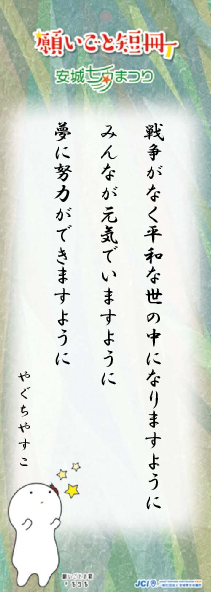 願いごと短冊
安城七夕まつり
戦争がなく平和な世の中になりますように
みんなが元気でいますように
夢に努力ができますように
やぐちやすこ
JCI